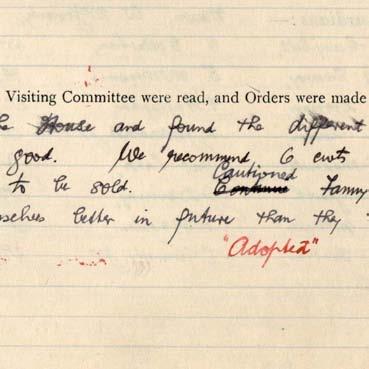 Visiting Committee were read, and Orders were made
he House and found the different
good. We recommend 6 cwts
Cautioned
to be sold. Continue Fanny
mselves better in future than they
"Adopted"